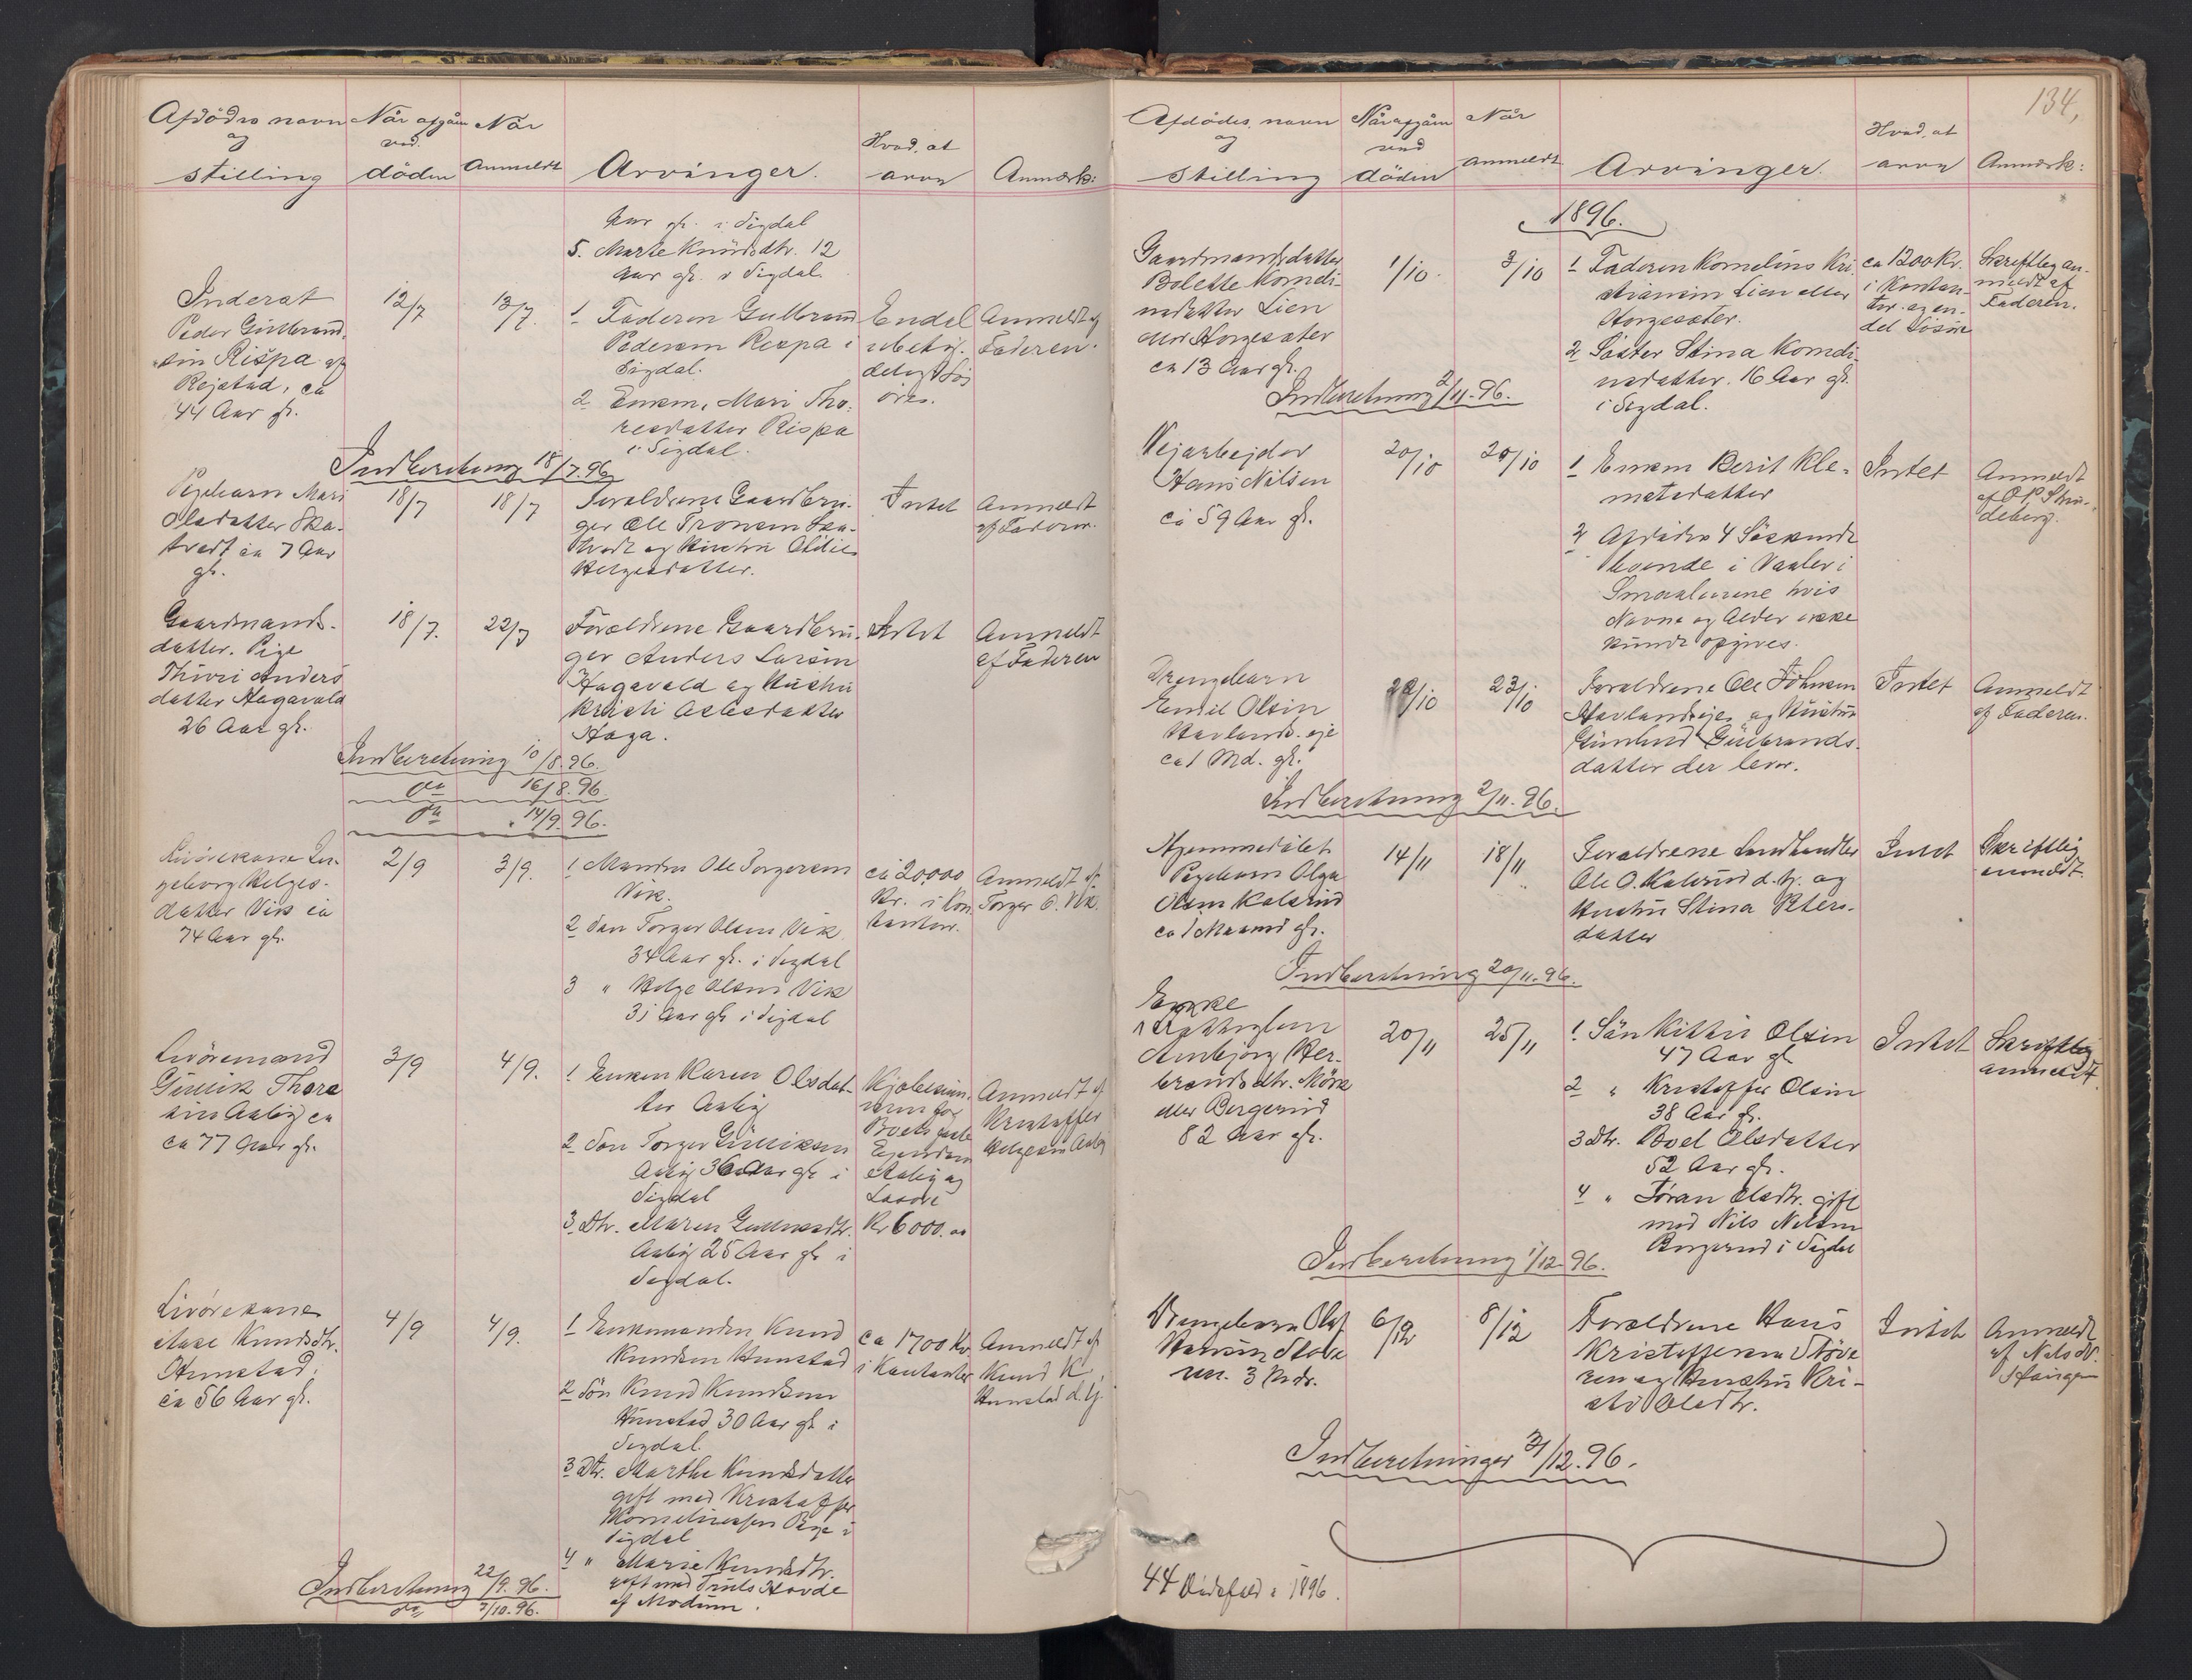 Afdødes navn
og
stilling
Når afgåen
ved
døden
Når
anmeldt
Arvinger.
Hvad, at
arve
Anmærk:
Aar gl. i Sigdal
5. Marte Knudsdtr. 12
Aar gl. i Sigdal.
Inderst
Peder Gulbrand-
sen Rispa af
ca
44 Aar gl.
12/7
13/7.
1 Faderen Gulbrand
Pedersen Rispa i
Sigdal.
2 Enken, Mari Tho-
resdatter Rispa
i Sigdal.
Endel
ubety-
deligt Løs
øre.
Anmeldt af
Faderen.
Indberetning 18/7.96
Pigebarn Mari
Olsdatter Ska-
tvedt ca 7 Aar
gl.
18/7
18/7
Foreldrene Gaardbru-
ger Ole Tronsen Ska-
tvedt og Hustru
Helgesdatter.
Intet
Anmeldt
af Faderen.
Gaardmands-
datter. Pige
Thuri Anders
datter Hagavold
26 Aar gl.
18/7.
22/7
Foreldrene Gaardbru-
ger Anders Larsen
Hagavold og Hustru
Kristi Asle­sdatter
Haga.
Intet
Anmeldt
af Faderen
Indberetning 10/8.96.
do 16/8.96.
do 14/9.96.
Livørekone In-
geborg Helges-
datter Vik ca
74 Aar gl.
2/9
3/9.
1 Manden Ole Torgersen
Vik.
2 Søn Torger Olsen Vik
34 Aar gl. i Sigdal
3 " Helge Olsen Vik
31 Aar gl i Sigdal
ca 20,000
Kr. i Kon-
tanter.
Anmeldt af
Torger O. Vik.
Livøremand
Gullik Thore
sen Aasly ca
ca 77 Aar gl.
3/9
4/9.
1 Enken Karen Olsdat-
ter Aasly
2 Søn Torger Gulliksen
Aasly 36 Aar gl i
Sigdal
3. Dtr. Maren Gulliksdtr.
Aasly 25 Aar gl i
Sigdal.
Boets faste
Eiendom
Aasly og
Løsøre
Kr 6000.00
Anmeldt af
Kristoffer
Helgesen Aasly
Livørekone
Aase Knudsdtr.
Hunstad.
ca 56 Aar gl.
4/9
4/9.
1 Enkemanden Knud
Knudsen Hunstad
2 Søn Knud Knudsen
Hunstad 30 Aar gl i
Sigdal.
3 Dtr. Marthe Knudsdatter
gift med Kristoffer
Korneliussen i
Sigdal
4 " Marie Knudsdtr.
gift med Truls Hovde
af Modum.
ca 1700 Kr
i Kontanter
Anmeldt af
Knud K.
Hunstad d.y.
Indberetning 22/9.96.
do 3/10.96.
134,
Afdødes, navn
og
stilling
Når afgåen
ved
døden
Når
anmeldt
Arvinger.
Hvad, at
arve
Anmærk:
1896.
Gaardmandsdatter
Bolette Korneli-
usdatter Lien
eller Horgesæter
ca 13 Aar gl.
1/10.
3/10
1 Faderen Kornelius Kri-
stiansen Lien eller
Horgesæter.
2 Søster Stina Korneli-
usdatter. 16 Aar gl.
i Sigdal.
ca 1200 Kr.
i Kontan-
ter. og en-
del Løsøre
Skriftlig an-
meldt af
Faderen.
Indberetning 2/11.96.
Vejarbejder
Hans Nilsen
ca 59 Aar gl.
20/10
20/10
1 Enken Berit Kle-
metsdatter
2 Afdødes 4 Søskende
boende i Vaaler i
Smaalenene hvis
Navne og Alder ikke
kunde opgives.
Intet
Anmeldt
af O.P. Skru-
deberg.
Drengebarn
Emil Olsen
Havlands. eje
ca 1 Md. gl.
22/10
23/10
Foreldrene Ole Johnsen
Havlandseje og Hustru
Gunhild Gulbrands-
datter der lever.
Intet
Anmeldt
af Faderen.
Indberetning 2/11.96.
Hjemmedøbt
Pigebarn Olga
Olsen Kolsrud
ca 1 Maaned gl.
14/11
18/11
Foreldrene Landhandler
Ole O. Kolsrud d.y. og
Hustru Stina Peters-
datter
Intet
Skriftlig
anmeldt.
Indberetning 20/11.96.
Enke
Fattiglem
Anbjørg Her-
brandsdtr. Mørk
eller Bergerud
82 Aar gl.
20/11
25/11
1. Søn Kittil Olsen
47 Aar gl
2 " Kristoffer Olsen
38 Aar gl.
3 Dtr. Boel Olsdatter
52 Aar gl.
4 " Jøran Olsdtr. gift
med Nils Nilsen
Borgerud i Sigdal
Intet
Skriftlig
anmeldt.
Indberetning 1/12.96.
Drengebarn Olaf
Hansen Støve
ren. 3 Mdr.
6/12
8/12
Foreldrene Hans
Kristoffersen Støve
ren og Hustru Kri-
sti Olsdtr.
Intet
Anmeldt
af Nils Dr.
Haugen
Indberetninger 31/12.96.
44 Dødsfald i 1896.